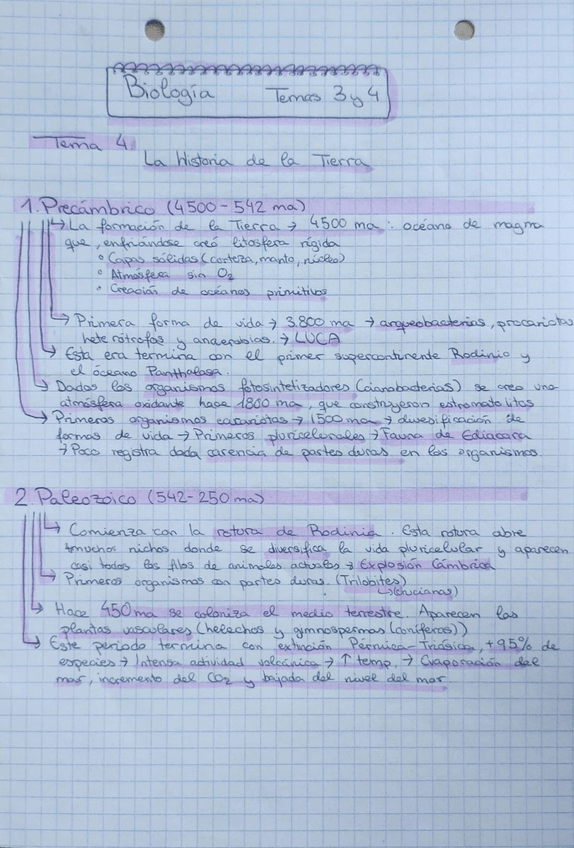 Biología Temas 3 y 4
Tema 4
La Historia de la Tierra
1. Precámbrico (4500-542 ma)
↳ La formación de la Tierra → 4500 ma: océano de magma
que, enfriándose creó litosfera rígida
° Capas sólidas (corteza, manto, núcleo)
° Atmósfera sin O₂
° Creación de océanos primitivos
↳ Primera forma de vida → 3.800 ma → arqueobacterias, procariotas
heterótrofas y anaerobias. → LUCA
↳ Esta era termina con el primer supercontinente Rodinia y
el océano Panthalasa.
↳ Dados los organismos fotosintetizadores (cianobacterias) se crea una
atmósfera oxidante hace 1800 ma, que construyeron estromatolitos
↳ Primeros organismos eucariotas → 1500 ma → diversificación de
formas de vida → Primeros pluricelulares → Fauna de Ediacara
→ Poco registro dada carencia de partes duras en los organismos
2 Paleozoico (542-250 ma)
↳ Comienza con la rotura de Rodinia. Esta rotura abre
muchos nichos donde se diversifica la vida pluricelular y aparecen
casi todos los filos de animales actuales → Explosión Cámbrica
↳ Primeros organismos con partes duras. (Trilobites)
↳ (crucianas)
↳ Hace 450 ma se coloniza el medio terrestre. Aparecen las
plantas vasculares (helechos y gymnospermas (coníferas))
↳ Este periodo termina con extinción Pérmica-Triásica, +95% de
especies → Intensa actividad volcánica → ↑ temp. → Evaporación del
mar, incremento del CO₂ y bajada del nivel del mar.